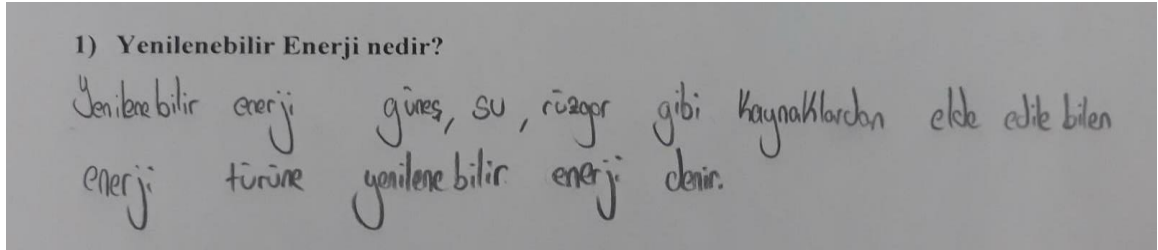 1) Yenilenebilir Enerji nedir?
Yenilenebilir enerji güneş, su, rüzgar gibi kaynaklardan elde edile bilen
enerji türüne yenilene bilir enerji denir.